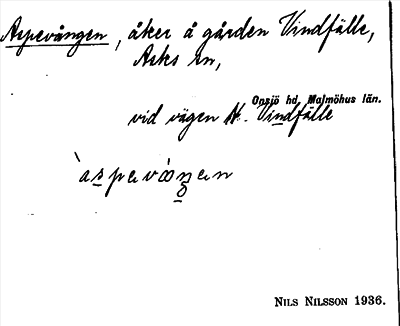 Aspevången, åker å gården Vindfälle,
Asks sn,
Onsjö hd, Malmöhus län.
vid vägen N. Vindfälle
NILS NILSSON 1936.